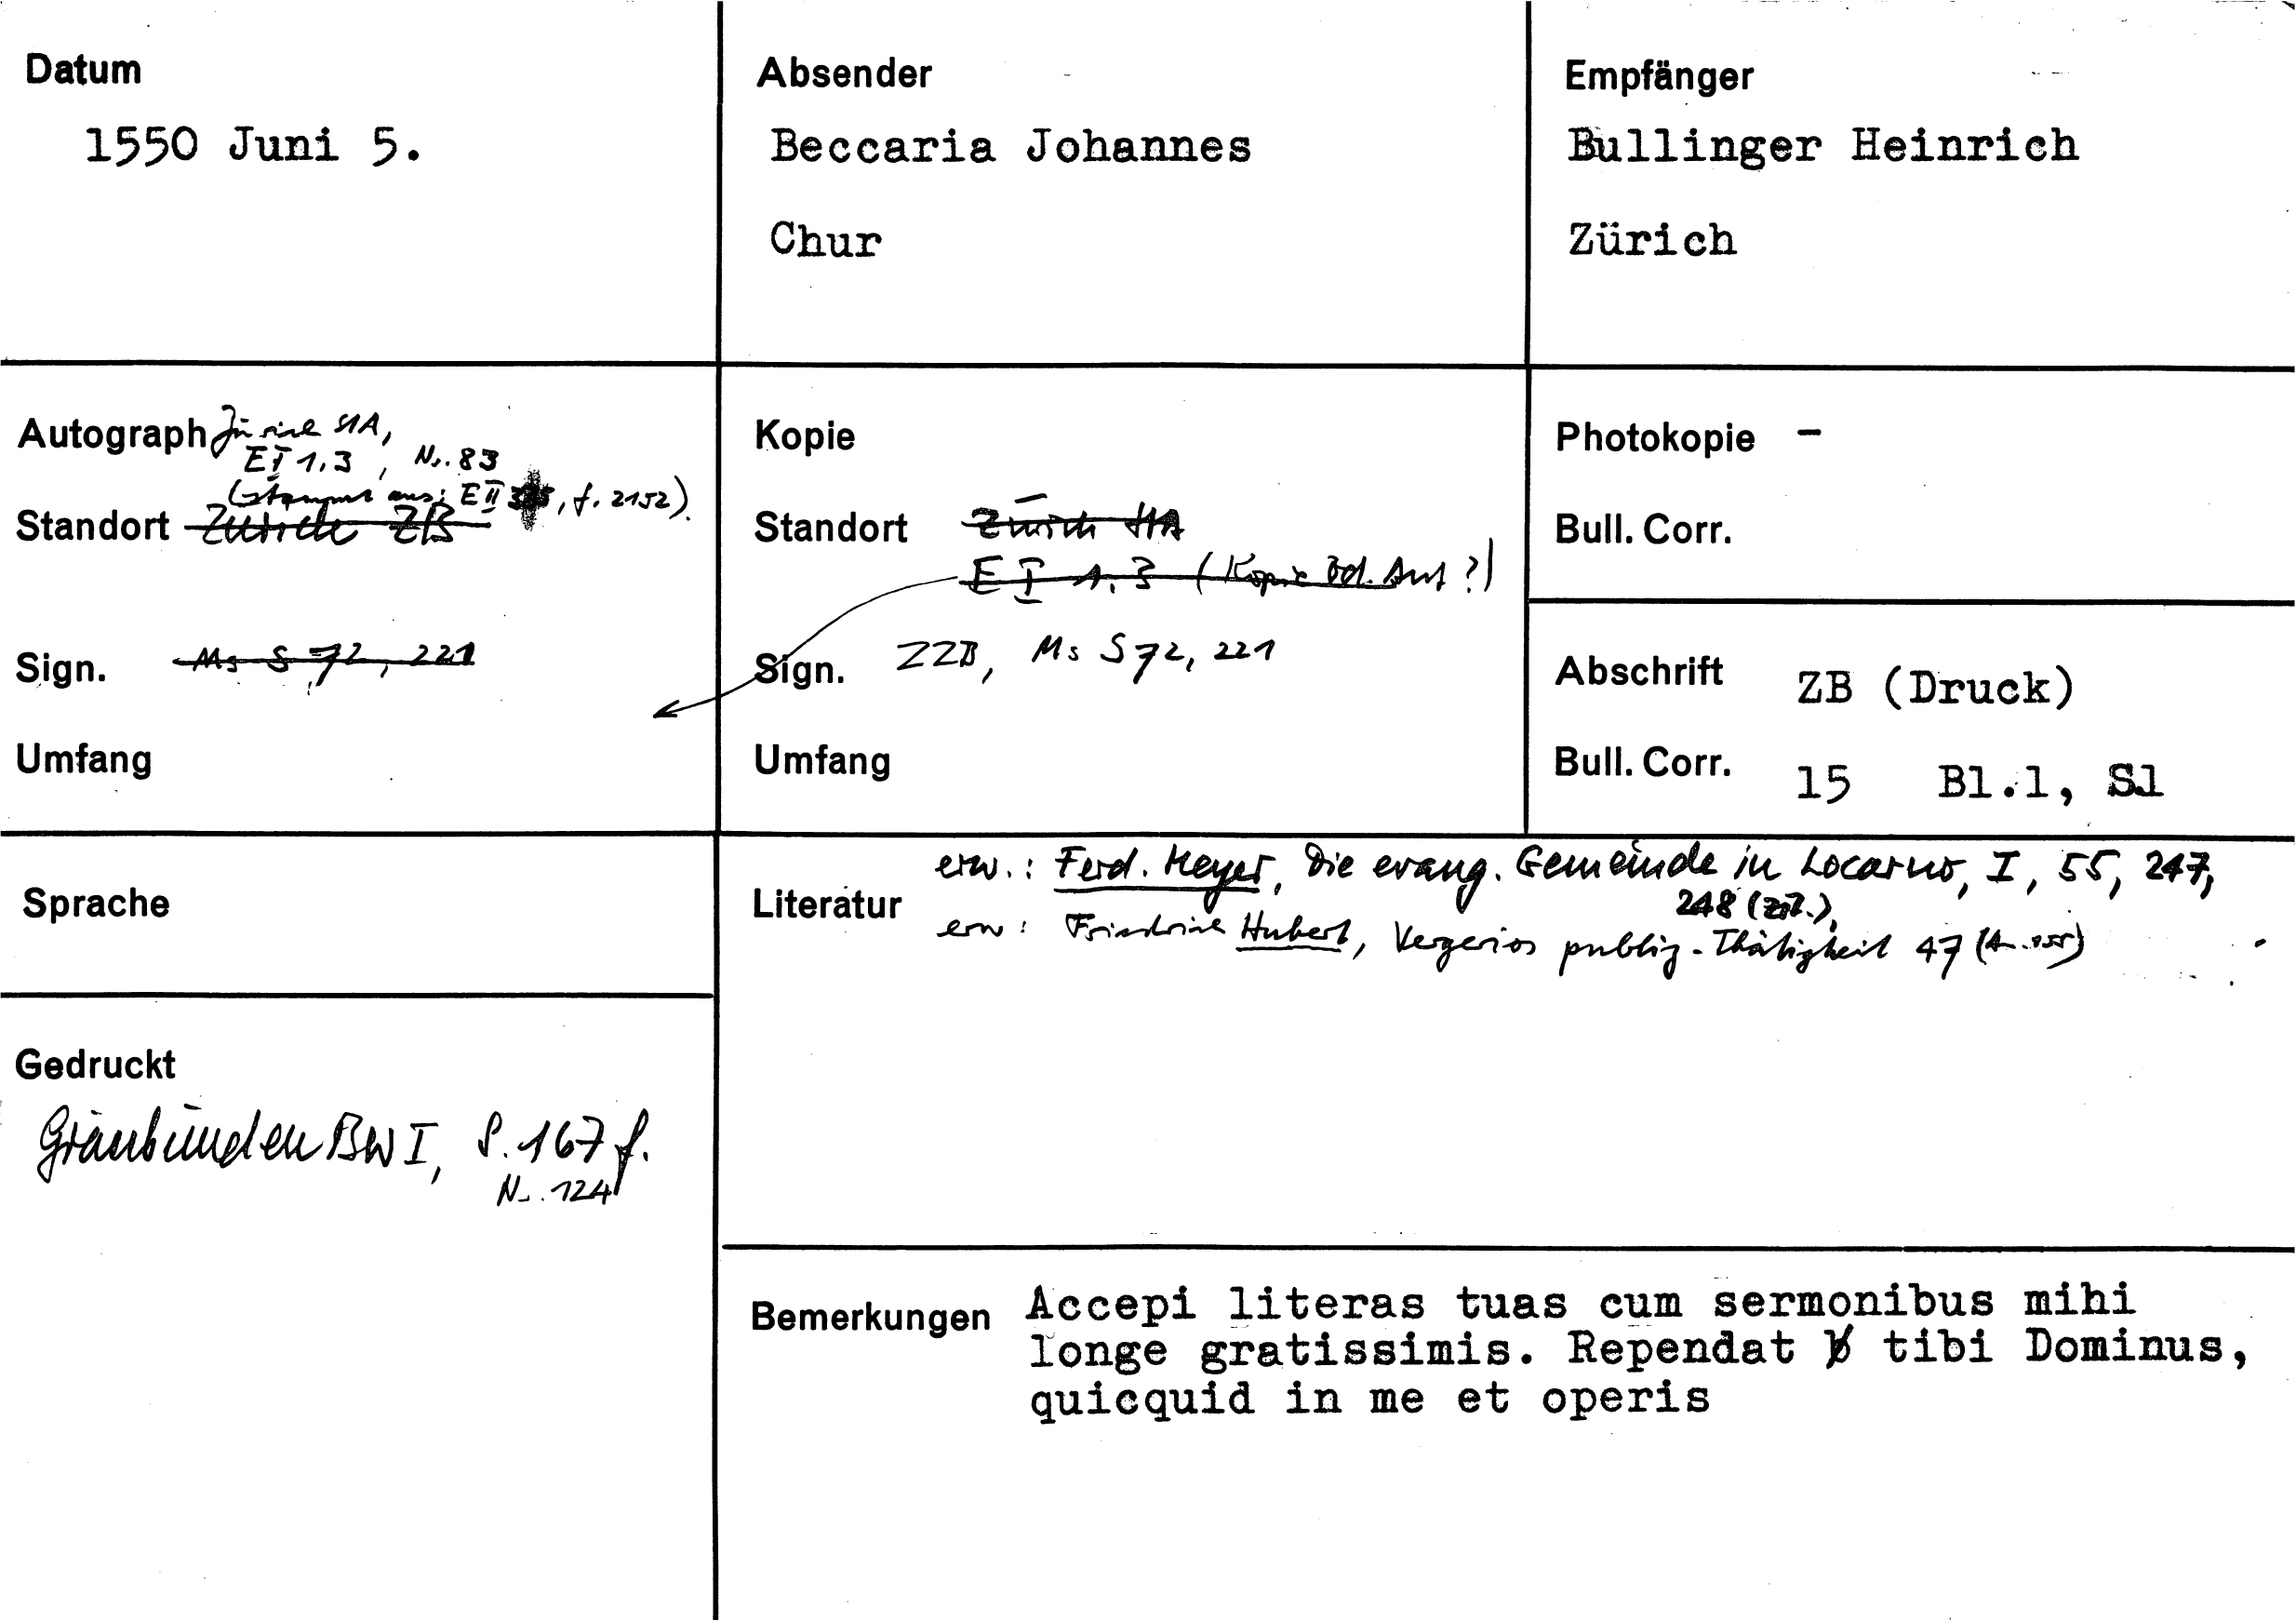 Datum
1550 Juni 5.
Absender
Beccaria Johannes
Chur
Empfänger
Bullinger Heinrich
Zürich
Autograph Zürich StA,
E I 1.3, Nr. 83
(stammt aus: E II , f. 2152).
Standort Zürich ZB
Sign. Ms S 72, 221
Umfang
Kopie
Standort Zürich StA
E I 1.3 (Kopie od. Aut?)
Sign. ZZB, Ms S 72, 221
Umfang
Photokopie –
Bull. Corr.
Abschrift ZB (Druck)
Bull. Corr. 15 Bl.1, S1
Sprache
Gedruckt
Graubünden BW I, S. 167 f.
Nr. 124
Literatur
erw.: Ferd. Meyer, Die evang. Gemeinde in Locarno, I, 55, 247,
248 (zit.),
erw: Friedrich Hubert, Vergerios publiz. Thätigkeit 47
Bemerkungen
Accepi literas tuas cum sermonibus mihi
longe gratissimis. Rependat tibi Dominus,
quicquid in me et operis